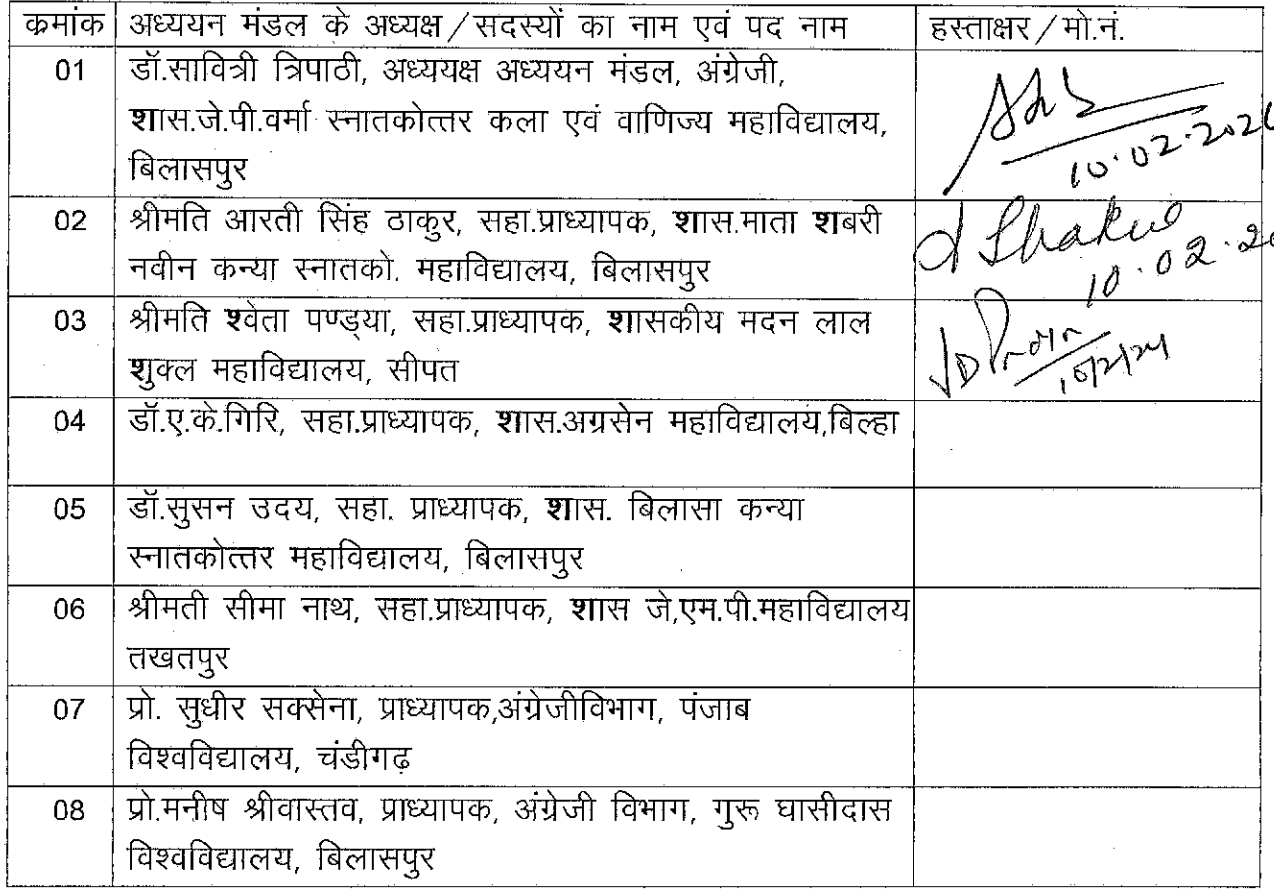 क्रमांक अध्ययन मंडल के अध्यक्ष / सदस्यों का नाम एवं पद नाम हस्ताक्षर / मो.नं.
01 डॉ.सावित्री त्रिपाठी, अध्ययक्ष अध्ययन मंडल, अंग्रेजी,
शास.जे.पी.वर्मा स्नातकोत्तर कला एवं वाणिज्य महाविद्यालय,
बिलासपुर
10.02.202
02 श्रीमति आरती सिंह ठाकुर, सहा.प्राध्यापक, शास.माता शबरी
नवीन कन्या स्नातको. महाविद्यालय, बिलासपुर
10.02.20
03 श्रीमति श्वेता पण्ड्या, सहा.प्राध्यापक, शासकीय मदन लाल
शुक्ल महाविद्यालय, सीपत
04 डॉ.ए.के.गिरि, सहा.प्राध्यापक, शास.अग्रसेन महाविद्यालय,बिल्हा
05 डॉ.सुसन उदय, सहा. प्राध्यापक, शास. बिलासा कन्या
स्नातकोत्तर महाविद्यालय, बिलासपुर
06 श्रीमती सीमा नाथ, सहा.प्राध्यापक, शास जे,एम.पी.महाविद्यालय
तखतपुर
07 प्रो. सुधीर सक्सेना, प्राध्यापक,अंग्रेजीविभाग, पंजाब
विश्वविद्यालय, चंडीगढ़
08 प्रो.मनीष श्रीवास्तव, प्राध्यापक, अंग्रेजी विभाग, गुरू घासीदास
विश्वविद्यालय, बिलासपुर